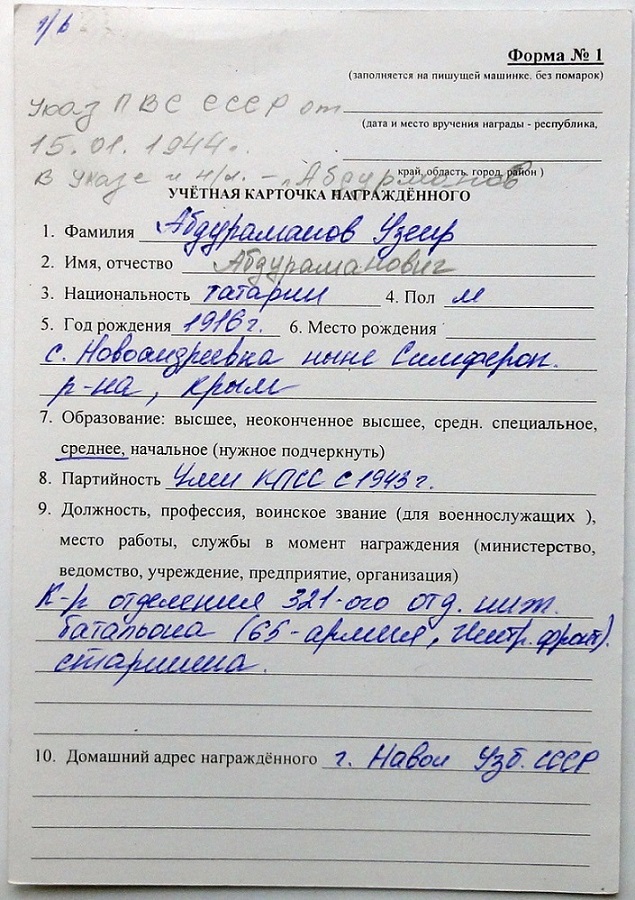 Форма № 1
(заполняется на пишущей машинке, без помарок)
Указ ПВС СССР от
(дата и место вручения награды - республика,
15.01.1944г.
край, область, город, район )
В Указе и н/л. - "Абдурманов
УЧЁТНАЯ КАРТОЧКА НАГРАЖДЁННОГО
1. Фамилия Абдураманов Узеир
2. Имя, отчество Абдураманович
3. Национальность татарин 4. Пол м
5. Год рождения 1916г. 6. Место рождения
с. Новоандреевка ныне Симфероп.
р-на, Крым
7. Образование: высшее, неоконченное высшее, средн. специальное,
среднее, начальное (нужное подчеркнуть)
8. Партийность Член КПСС с 1943г.
9. Должность, профессия, воинское звание (для военнослужащих ),
место работы, службы в момент награждения (министерство,
ведомство, учреждение, предприятие, организация)
К-р отделения 321-ого отд. инж.
батальона (65-армия, Центр. фронт).
старшина.
10. Домашний адрес награждённого г. Навои Узб. ССР